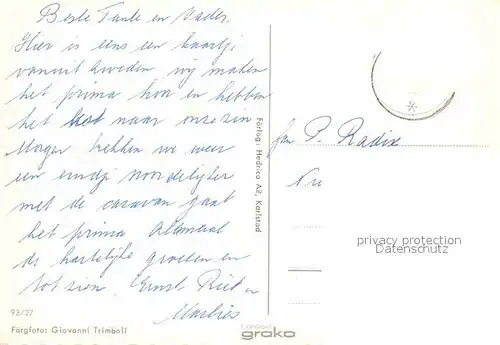 Beste Tante en Vader.
Hier is eens een kaartje
vanuit Zweden wij maken
het prima hier en hebben
het heel naar onze zin
Morgen trekken we weer
een eindje noordelijker
met de caravan gaat
het prima Allemaal
de hartelijke groeten en
tot ziens. Ernst Riet en
Marlies
93/27
Färgfoto: Giovanni Trimboli
Förlag: Hedrica AB, Karlstad
grako
Fam P. Radix
privacy protection
Datenschutz